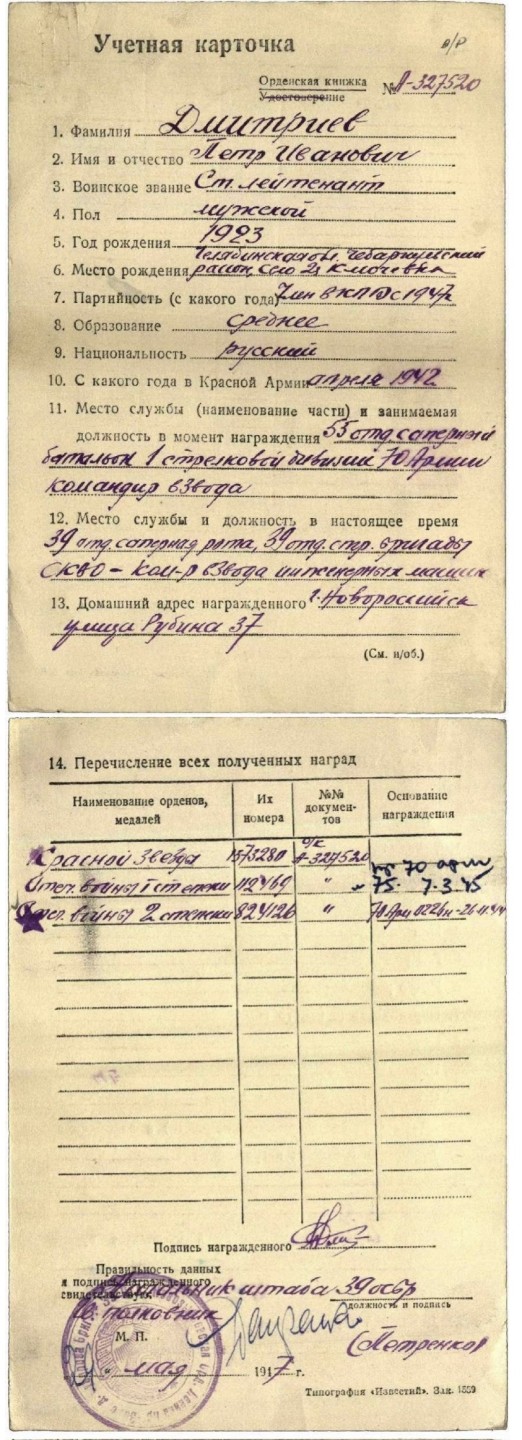 Учетная карточка
Орденская книжка № А-327520
Удостоверение
1. Фамилия Дмитриев
2. Имя и отчество Петр Иванович
3. Воинское звание Ст. лейтенант
4. Пол мужской
5. Год рождения 1923
6. Место рождения Челябинская обл. Чебаркульский
район, село
7. Партийность (с какого года) член ВКПб с 1947г
8. Образование среднее
9. Национальность русский
10. С какого года в Красной Армии апреля 1942
11. Место службы (наименование части) и занимаемая
должность в момент награждения 55 отд. саперный
батальон 1 стрелковой дивизии 70 Армии
командир взвода
12. Место службы и должность в настоящее время
39 отд. саперная рота, 39 отд. стр. бригады
СКВО – ком-р взвода инженерных машин
13. Домашний адрес награжденного г. Новороссийск
улица Рубина 37
(См. н/об.)
14. Перечисление всех полученных наград
Наименование орденов, медалей
Их номера
№№ документов
Основание награждения
Красной Звезда 1573280 о/к А-327520
Отеч. войны 1 степени 112469 " пр 70 арм 75. 7.3.45
Отеч. войны 2 степени 824126 " 70 Арм
Подпись награжденного
Правильность данных
и подпись награжденного
свидетельствую: Начальник штаба 39 осбр
должность и подпись
полковник
М. П.
(Петренко)
" " мая 1947 г.
Типография «Известий». Зак. 1559